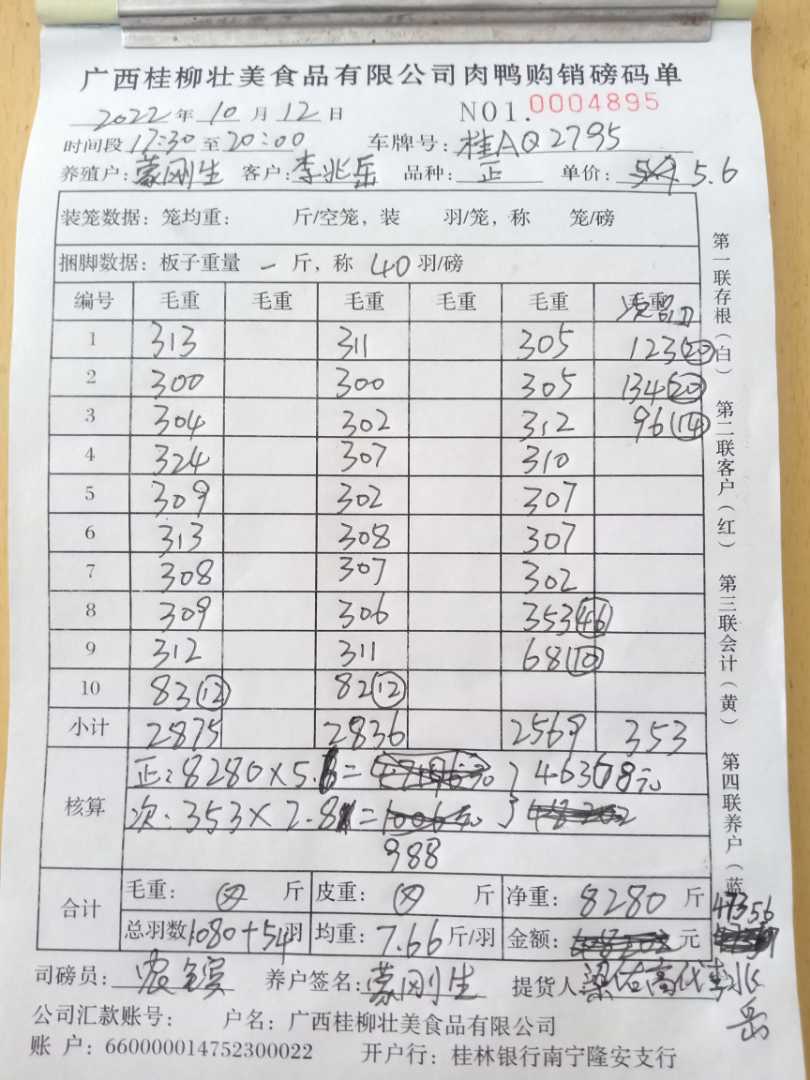 广西桂柳壮美食品有限公司肉鸭购销磅码单
2022年10月12日 NO1.0004895
时间段17:30至20:00 车牌号:桂AQ2795
养殖户:蒙刚生 客户:李兆岳 品种:正 单价: 5.6
装笼数据:笼均重: 斤/空笼,装 羽/笼,称 笼/磅
捆脚数据:板子重量 一 斤,称 40 羽/磅
编号 毛重 毛重 毛重 毛重 毛重
1 313 311 305 123(20)
2 300 300 305 134(20)
3 304 302 312 96(14)
4 324 307 310
5 309 302 307
6 313 308 307
7 308 307 302
8 309 306 353(46)
9 312 311 68(10)
10 83(12) 82(12)
小计 2875 2836 2569 353
核算
正:8280×5.6= }46368元
次.353×2.8=
988
合计
毛重: 斤 皮重: 斤 净重:8280斤
总羽数1080+54羽 均重:7.66斤/羽 金额: 元 47356
司磅员: 养户签名:蒙刚生 提货人 代李兆岳
公司汇款账号: 户名:广西桂柳壮美食品有限公司
账 户:660000014752300022 开户行:桂林银行南宁隆安支行
第一联存根(白) 第二联客户(红) 第三联会计(黄) 第四联养户(蓝